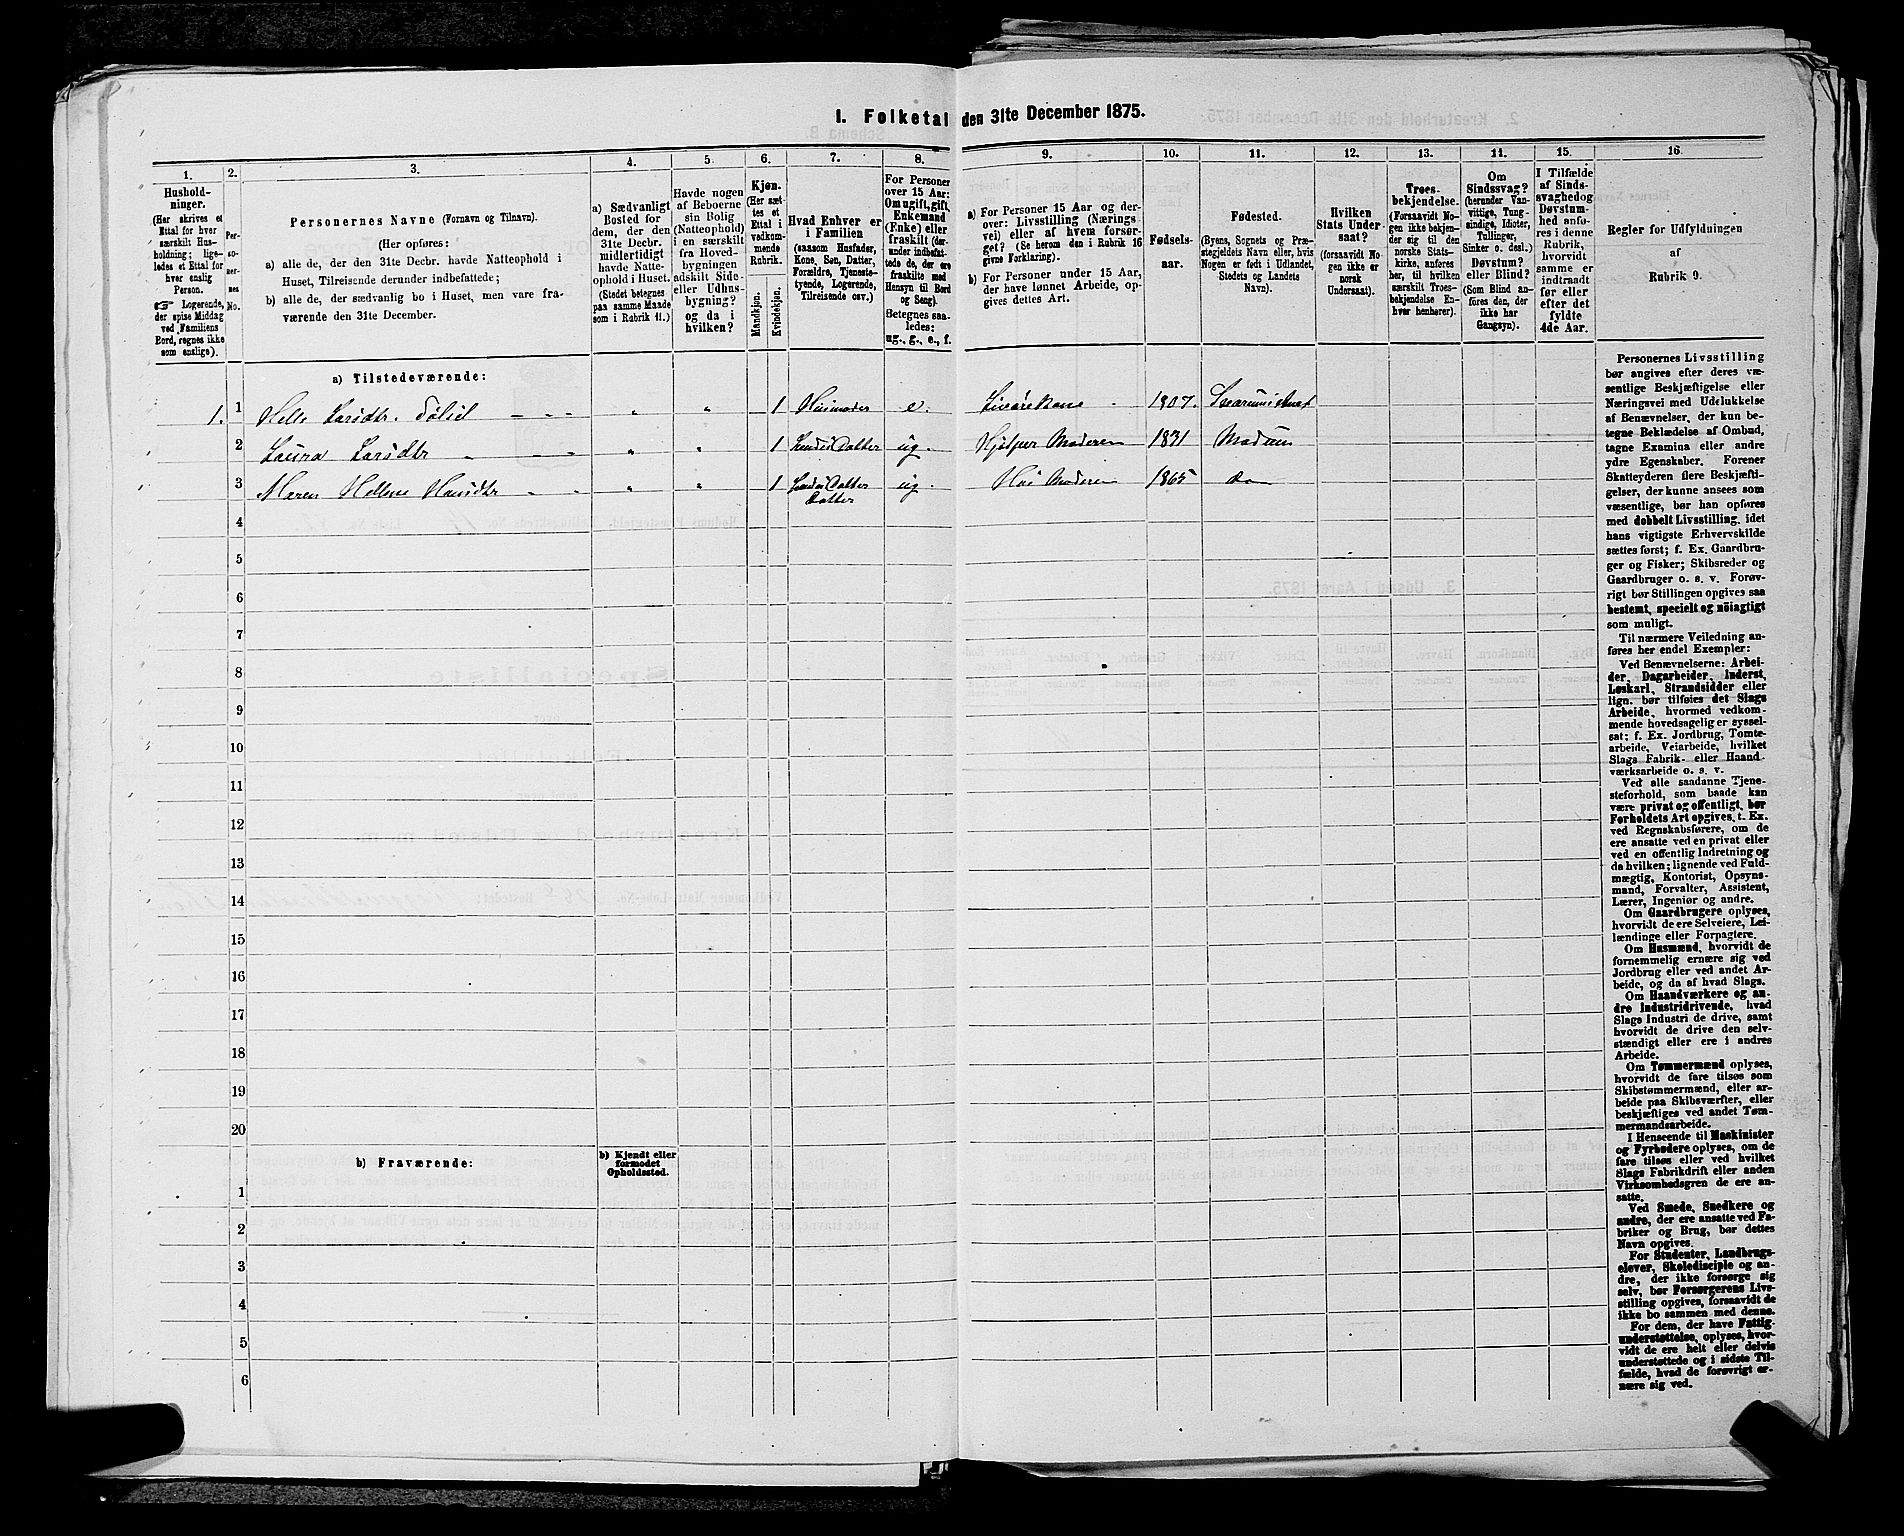 1. Folketal den 31te December 1875.
1.
Hushold-
ninger.
(Her skrives et
Ettal for hver
særskilt Hus-
holdning; lige-
ledes et Ettal for
hver enslig
Person.
☞ Logerende,
der spise Middag
ved Familiens
Bord, regnes ikke
som enslige).
2.
Per-
so-
ner-
nes
No.
3.
Personernes Navne (Fornavn og Tilnavn).
(Her opføres:
a) alle de, der den 31te Decbr. havde Natteophold i
Huset, Tilreisende derunder indbefattede;
b) alle de, der sædvanlig bo i Huset, men vare fra-
værende den 31te December.
4.
a) Sædvanligt
Bosted for
dem, der den
31te Decbr.
midlertidigt
havde Natte-
ophold i Huset.
(Stedet betegnes
paa samme Maade
som i Rubrik 11.)
5.
Havde nogen
af Beboerne
sin Bolig
(Natteophold)
i en særskilt
fra Hoved-
bygningen
adskilt Side-
eller Udhus-
bygning?
og da i
hvilken?
6.
Kjøn.
(Her sæt-
tes et
Ettal i
vedkom-
mende
Rubrik.
Mandkjøn.
Kvindekjøn.
7.
Hvad Enhver er
i Familien
(saasom Husfader,
Kone, Søn, Datter,
Forældre, Tjeneste-
tyende, Logerende,
Tilreisende osv.)
8.
For Personer
over 15 Aar:
Om ugift, gift,
Enkemand
(Enke) eller
fraskilt (der-
under indbefat-
tede de, der ere
fraskilte med
Hensyn til Bord
og Seng).
Betegnes saa-
ledes:
ug., g., e., f.
9.
a) For Personer 15 Aar og der-
over: Livsstilling (Nærings-
vei) eller af hvem forsør-
get? (Se herom den i Rubrik 16
givne Forklaring).
b) For Personer under 15 Aar,
der have lønnet Arbeide, op-
gives dettes Art.
10.
Fødsels-
aar.
11.
Fødested.
(Byens, Sognets og Præ-
stegjeldets Navn eller, hvis
Nogen er født i Udlandet,
Stedets og Landets
Navn).
12.
Hvilken
Stats Under-
saat?
(forsaavidt No-
gen ikke er
norsk
Undersaat).
13.
Troes-
bekjendelse.
(Forsaavidt No-
gen ikke bekjen-
der sig til den
norske Stats-
kirke, anføres
her, til hvilken
særskilt Troes-
bekjendelse En-
hver henhører).
14.
Om
Sindssvag?
(herunder Van-
vittige, Tung-
sindige, Idioter,
Tullinger,
Sinker o. desl.)
Døvstum?
eller Blind?
(Som Blind an-
føres den, der
ikke har
Gangsyn).
15.
I Tilfælde
af Sinds-
svaghed og
Døvstum-
hed anfø-
res i denne
Rubrik,
hvorvidt
samme er
indtraadt
før eller
efter det
fyldte
4de Aar.
16.
Regler for Udfyldningen
af
Rubrik 9.
a) Tilstedeværende:
1. 1 Helle Larsdtr. - - - „ „ 1 Husmoder e. - 1807.
2 Laura Larsdtr „ - - - „ „ 1 Datter ug. Hjelper Moderen 1831 Modum
3 Maren Hellene Hansdtr - - „ „ 1 Datter ug. Hos Moderen 1865 do
Datter
4
5
6
7
8
9
10
11
12
13
14
15
16
17
18
19
20
b) Fraværende:
b) Kjendt eller
formodet
Opholdssted.
1
2
3
4
5
6
Personernes Livsstilling
bør angives efter deres væ-
sentlige Beskjæftigelse eller
Næringsvei med Udelukkelse
af Benævnelser, der kun be-
tegne Beklædelse af Ombud,
tagne Examina eller andre
ydre Egenskaber. Forener
Skatteyderen flere Beskjæfti-
gelser, der kunne ansees som
væsentlige, bør han opføres
med dobbelt Livsstilling, idet
hans vigtigste Erhvervskilde
sættes først; f. Ex. Gaardbru-
ger og Fisker; Skibsreder og
Gaardbruger o. s. v. Forøv-
rigt bør Stillingen opgives saa
bestemt, specielt og nöiagtigt
som muligt.
Til nærmere Veiledning an-
føres her endel Exempler:
Ved Benævnelserne: Arbei-
der, Dagarbeider, Inderst,
Løskarl, Strandsidder eller
lign. bør tilføies det Slags
Arbeide, hvormed vedkom-
mende hovedsagelig er syssel-
sat; f. Ex. Jordbrug, Tomte-
arbeide, Veiarbeide, hvilket
Slags Fabrik- eller Haand-
værksarbeide o. s. v.
Ved alle saadanne Tjene-
steforhold, som baade kan
være privat og offentligt, bør
Forholdets Art opgives, t. Ex.
ved Regnskabsførere, om de
ere ansatte ved en privat eller
ved en offentlig Indretning og
da hvilken; lignende ved Fuld-
mægtig, Kontorist, Opsyns-
mand, Forvalter, Assistent,
Lærer, Ingeniør og andre.
Om Gaardbrugere oplyses,
hvorvidt de ere Selveiere, Lei-
lændinge eller Forpagtere.
Om Husmænd, hvorvidt de
fornemmelig ernære sig ved
Jordbrug eller ved andet Ar-
beide, og da af hvad Slags.
Om Haandværkere og an-
dre Industridrivende, hvad
Slags Industri de drive, samt
hvorvidt de drive den selv-
stændigt eller ere i andres
Arbeide.
Om Tømmermænd oplyses,
hvorvidt de fare tilsøs som
Skibstømmermænd, eller ar-
beide paa Skibsværfter, eller
beskjæftiges ved andet Tøm-
mermandsarbeide.
I Henseende til Maskinister
og Fyrbødere oplyses, om de
fare tilsøs eller ved hvilket
Slags Fabrikdrift eller anden
Virksomhedsgren de ere an-
satte.
Ved Smede, Snedkere og
andre, der ere ansatte ved Fa-
briker og Brug, bør dettes
Navn opgives.
For Studenter, Landbrugs-
elever, Skoledisciple og an-
dre, der ikke forsørge sig
selv, bør Forsørgerens Livs-
stilling opgives, forsaavidt de
ikke bo sammen med denne.
For dem, der have Fattig-
understøttelse, oplyses, hvor-
vidt de ere helt eller delvis
understøttede og i sidste Til-
fælde, hvad de forøvrigt er-
nære sig ved.